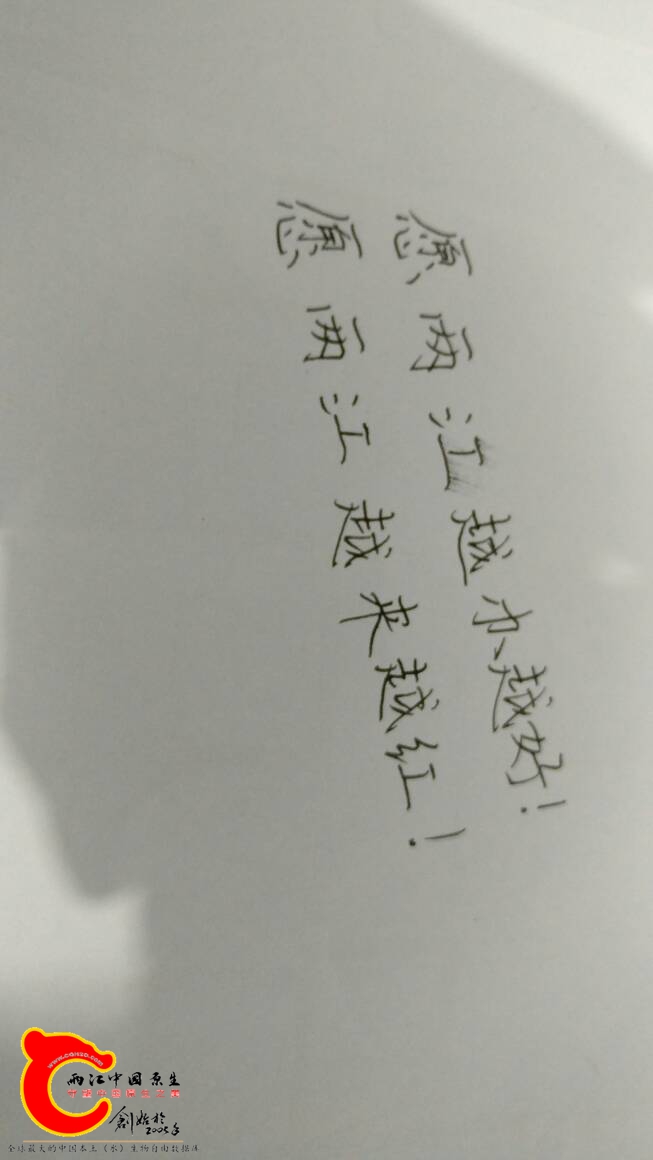 愿两江越办越好!
愿两江越来越红!
www.cgnso.com
两江中国原生
创始於
2005年
全球最大的中国本土《水》生物自由数据库